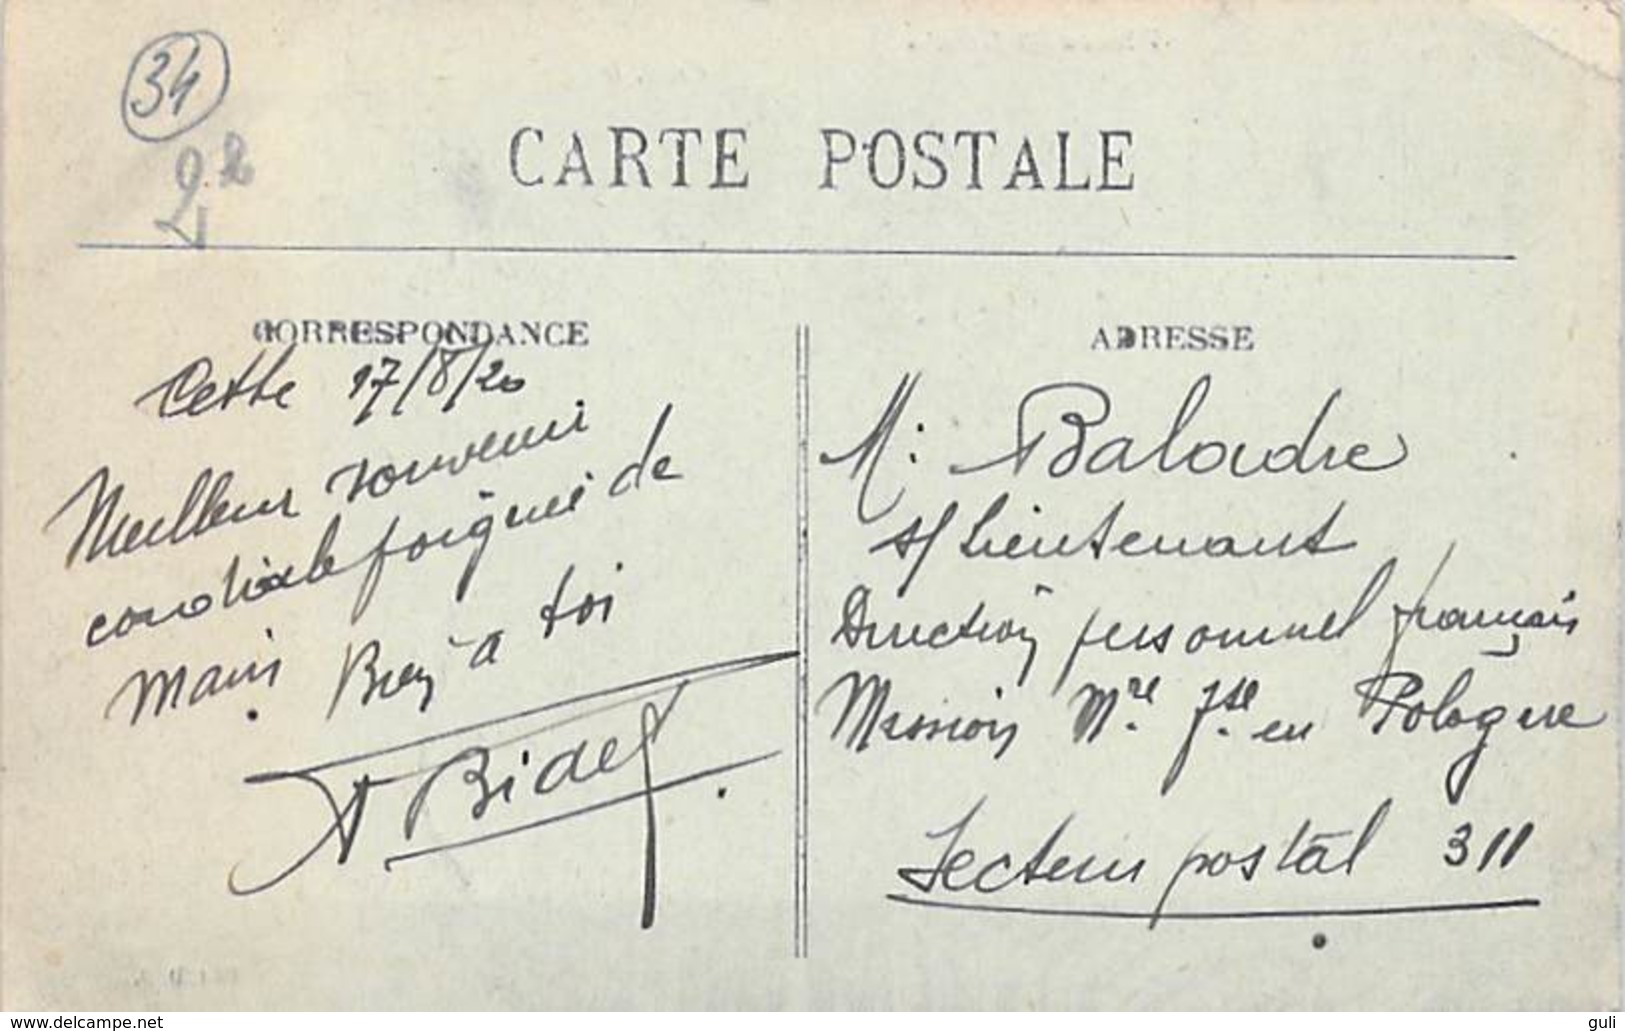 34
22
CARTE POSTALE
CORRESPONDANCE
Cette 17/8/20
Meilleur souvenir
cordiale poignée de
mains Bien à toi
A Bidet
ADRESSE
M. Baloudre
s/ Lieutenant
Direction personnel français
Mission Mre. fse. en Pologne
Secteur postal 311
www.delcampe.net
guli